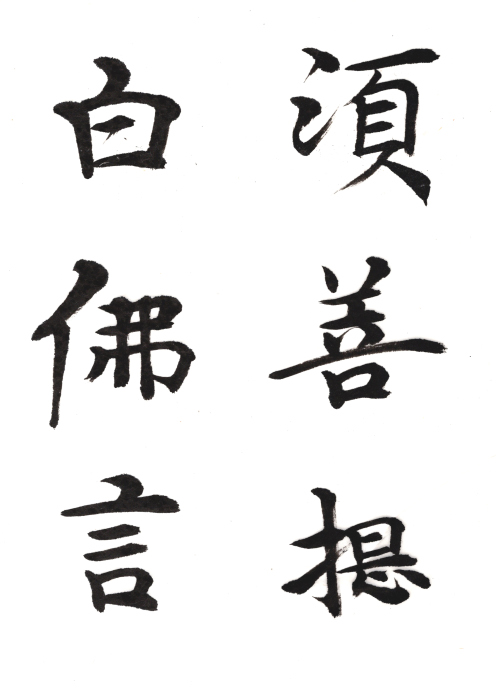 須菩提
白佛言